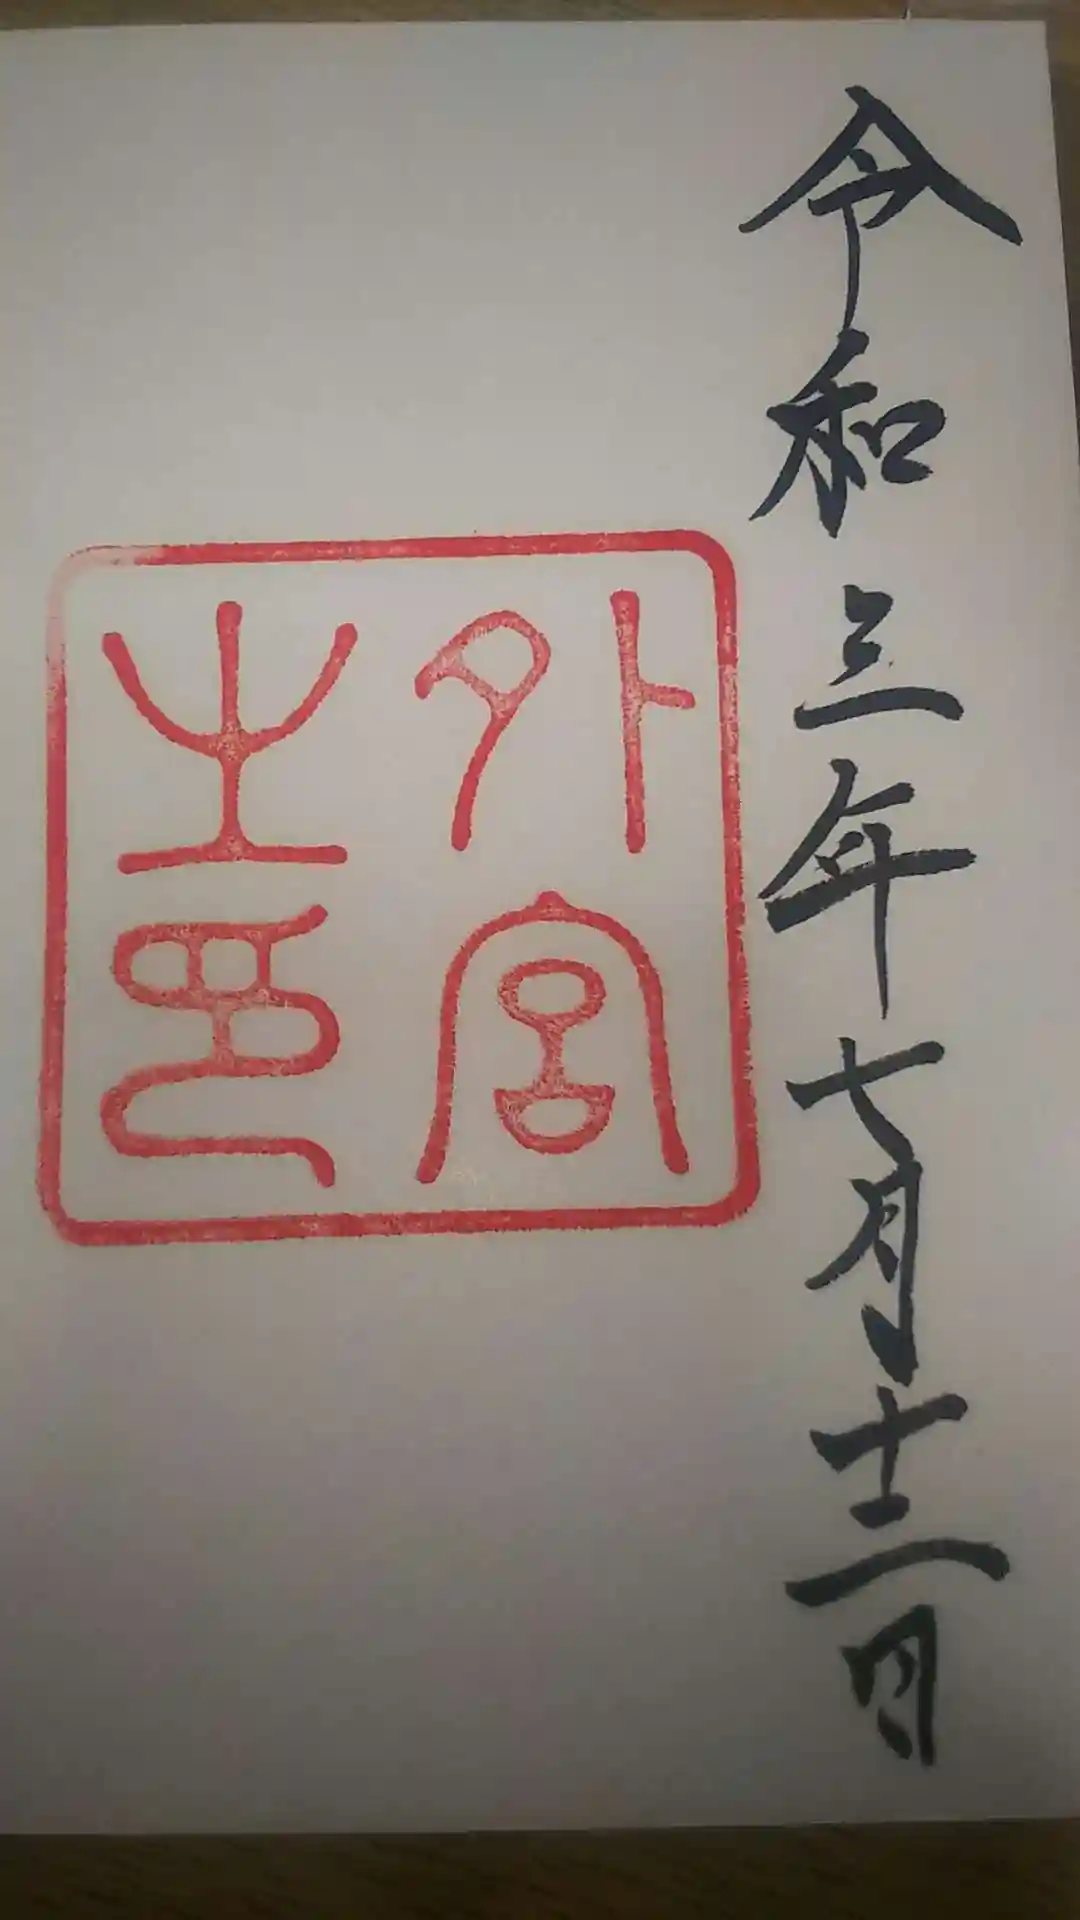 令和三年七月十二日
外宮
之印